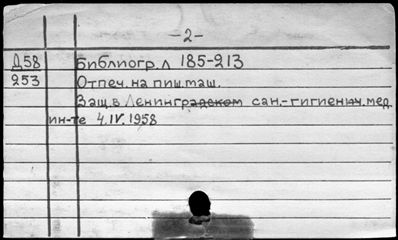 -2-
Д58 Библиогр. л 185-213
253 Отпеч. на пиш. маш.
Защ. в Ленинградском сан.-гигиенич. мед.
ин-те 4.IV.1958